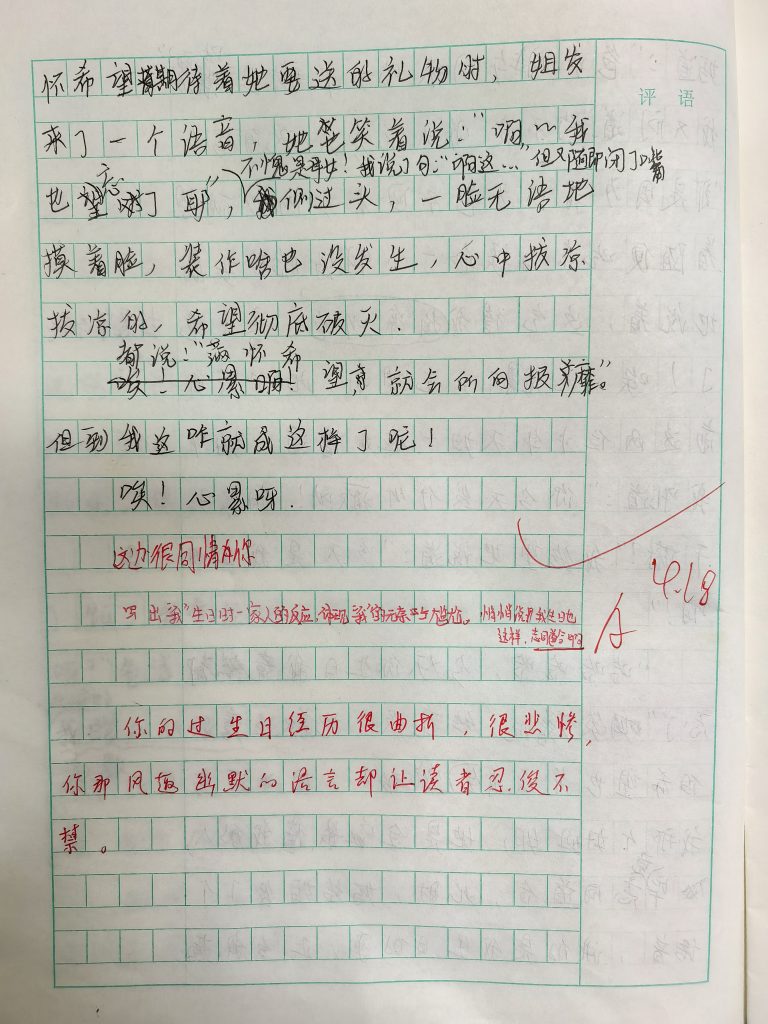 评语
怀希望期待着她要送的礼物时，姐发
来了一个语音，她笑着说："啊~我
不愧是母女！我说了句："啊这…"但又随即闭了嘴
也忘了耶"，侧过头，一脸无语地
摸着脸，装作啥也没发生，心中拔凉
拔凉的，希望彻底破灭.
都说："满怀希
唉！心累啊！望，就会所向披靡。"
但到我这咋就成这样了呢！
唉！心累呀.
这边很同情你
4.18
写出"我"生日时一家人的反应，体现"我"的无奈与尴尬。悄悄说我生日也
这样，志同道合啊
A
你的过生日经历很曲折，很悲惨，
你那风趣幽默的语言却让读者忍俊不
禁。